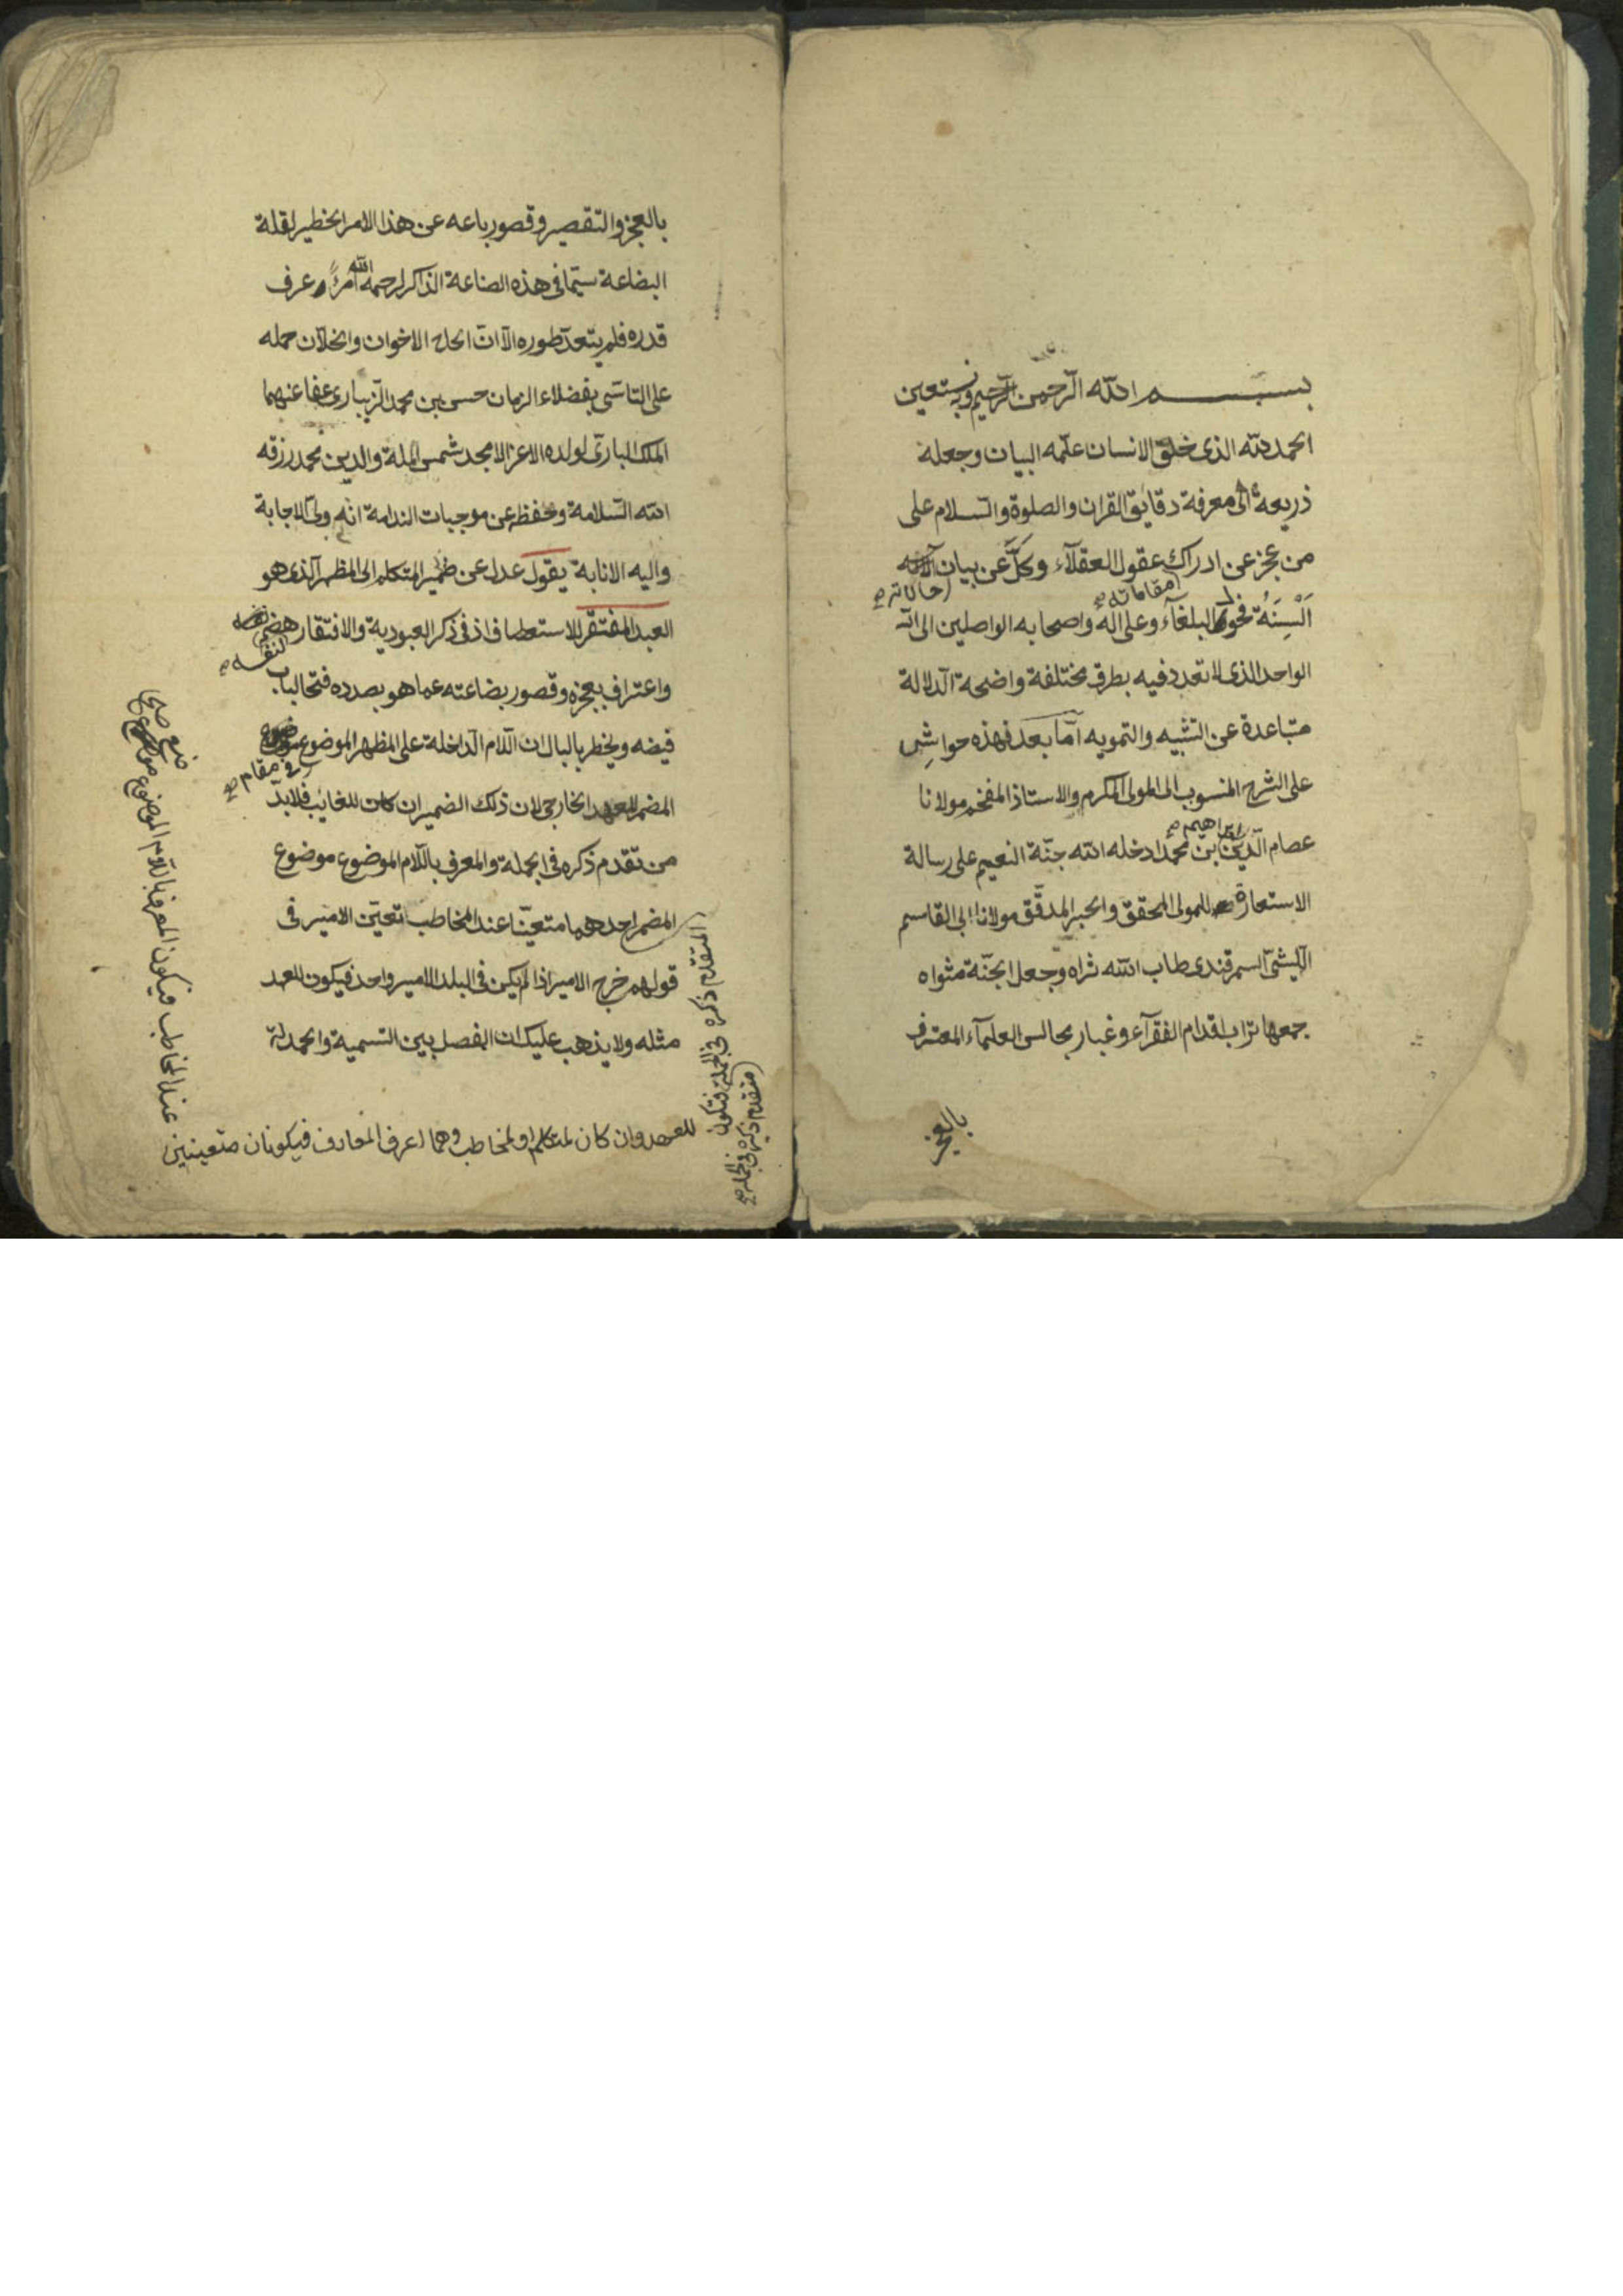 بسم الله الرحمن الرحيم وبه نستعين
الحمد لله الذى خلق الانسان علّمه البيان وجعله
ذريعة الى معرفة دقايق القران والصلوة والسلام على
من عجز عن ادراك عقول العقلآء وكلَّ عن بيان
مقاماته صح
حالاته صح
اَلْسِنَةُ فحول البلغآء وعلى اله واصحابه الواصلين الى
الواحد الذى لا تعدد فيه بطرق مختلفة واضحة الدلالة
متباعدة عن التشبيه والتمويه امّا بعد فهذه حواشِ
على الشرح المنسوب الى المولى المكرم والاستاذ المفخم مولانا
ابراهيم صح
عصام الدين بن محمد ادخله الله جنّة النعيم على رسالة
الاستعارة للمولى المحقق والحبر المدقّق مولانا ابى القاسم
الليثىّ السمرقندى طاب الله ثراه وجعل الجنّة مثواه
جمعها تراب اقدام الفقرآء وغبار مجالس العلمآء المعترف
بالعجز
بالعجز والتقصير وقصور باعه عن هذا الامر الخطير لقلة
البضاعة سيّما فى هذه الصناعة الذاكر لرحمه الله امرءً عرف
قدره فلم يتعدّ طوره الّا انّ الحاح الاخوان والخلّان حمله
على التاسّى بفضلاء الزمان حسن بن محمد الزيبارى عفا عنهما
الملك البارىّ لولده الاعز الامجد شمس الملة والدين محمد رزقه
الله السّلامة وحفظه عن موجبات الندامة انه ولىّ الاجابة
واليه الانابة يقول عدل عن ضمير المتكلم الى المظهر الذى هو
العبد المفتقر للاستعطاف اذ فى ذكر العبودية والافتقار هضم
لنفسه صح
واعتراف بعجزه وقصور بضاعته عما هو بصدده فتحا لباب
فيضه ويخطر بالبال ان اللام الداخلة على المظهر الموضوع موضوع
فى مقام صح
المضمر للعهد الخارجى لان ذلك الضمير ان كان للغايب فلابدّ
من تقدم ذكره فى الجملة والمعرف باللّام الموضوع موضوع
المضمر احدهما متعيّنا عند المخاطب تعيّن الامير فى
قولهم خرج الامير اذا لم يكن فى البلد الا امير واحد فيكون للعهد
مثله ولا يذهب عليك ان الفصل بين التسمية والحمدلة
المتقدم ذكره فى الجملة فتكون
متقدم ذكره فى الجملة صح
للعهد وان كان لمتكلم او لمخاطب وهما اعرف المعارف فيكونان متعينين
عند المخاطب فيكون المعرف باللام الموضوع